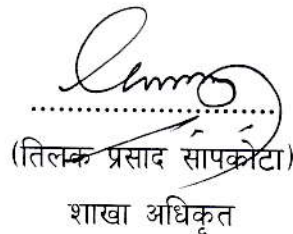 ....................................
(तिलक प्रसाद सापकोटा)
शाखा अधिकृत